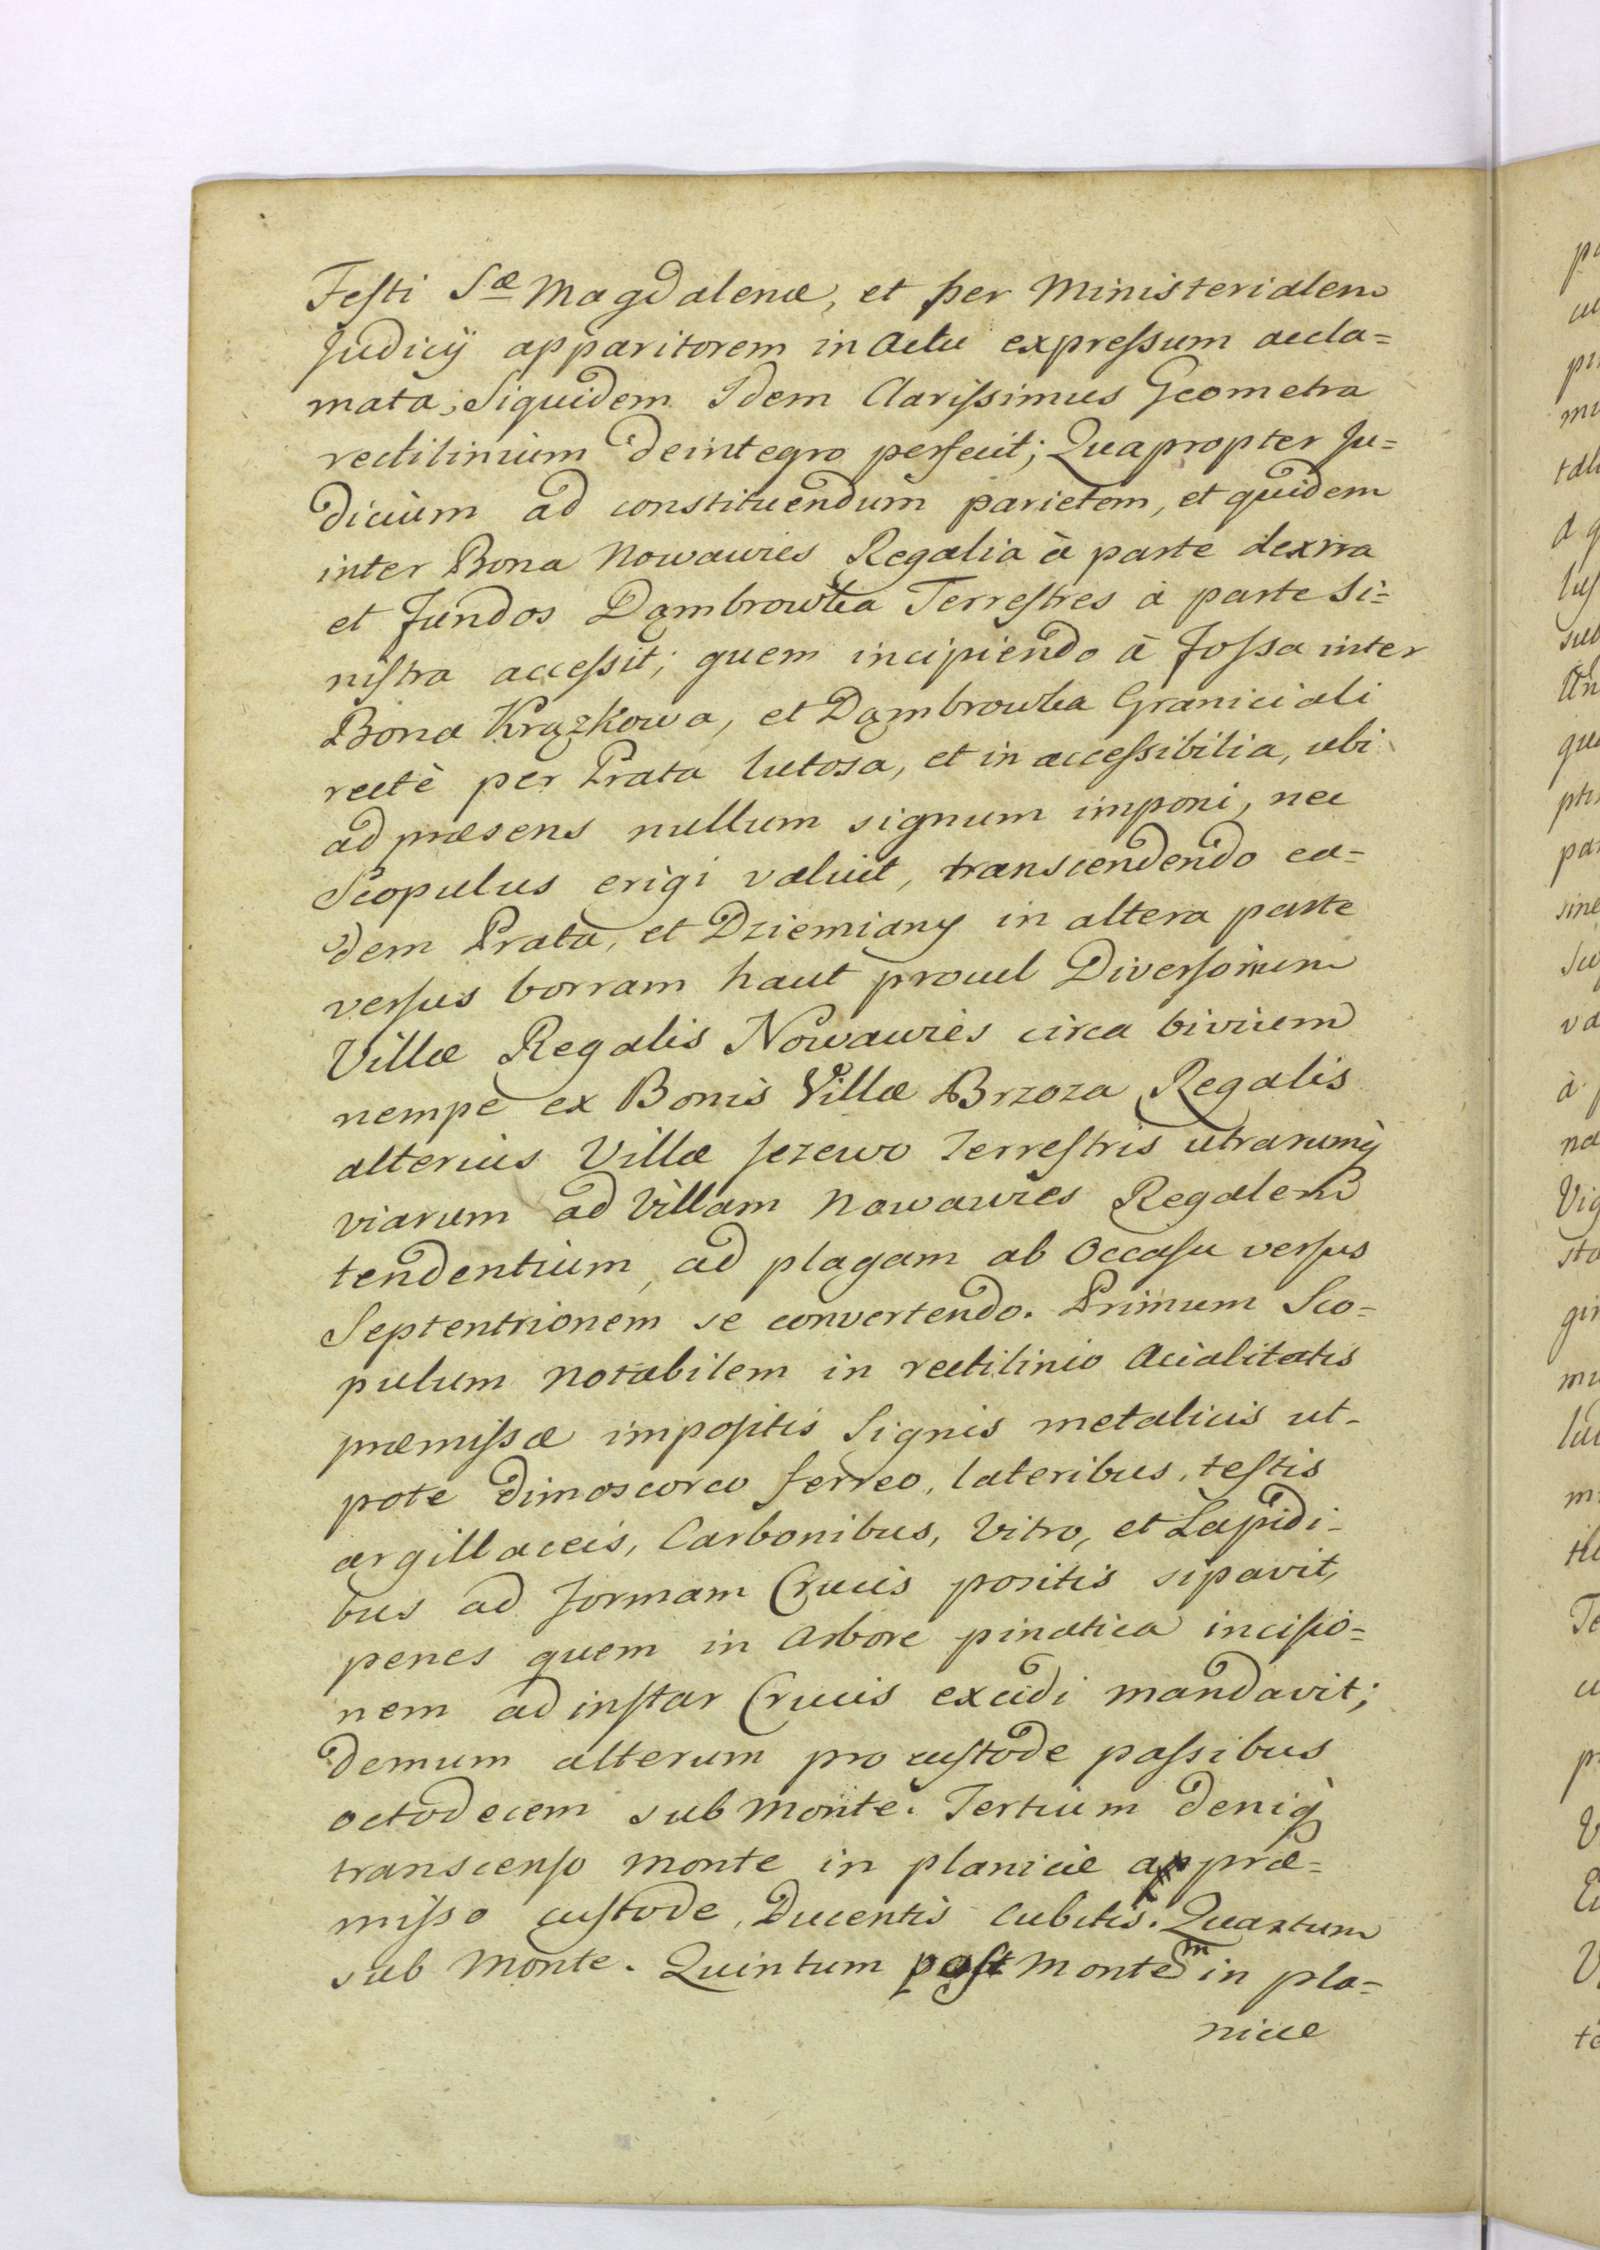 Festi Sæ Magdalenæ, et per Ministerialem
Judicÿ apparitorem in Actu expressum accla=
mata; Siquidem Idem Clarissimus Geometra
rectilinium deintegro perfecit; Quapropter Ju=
dicium ad constituendum parietem, et quidem
inter Bona Nowawies Regalia à parte dextra
et fundos Dąmbrowka Terrestres à parte Si=
nistra accessit; quem incipiendo à fossa inter
Bona Krązkowa, et Dąmbrowka Graniciali
rectè per Prata lutosa, et in accessibilia, ubi
ad præsens nullum signum imponi, nec
Scopulus erigi valuit, transcendendo ea=
dem Prata, et Dziemiany in altera parte
versus borram haut procul Diversorium
Villæ Regalis Nowawies circa bivium
nempe ex Bonis Villæ Brzoza Regalis
alterius Villæ Jezewo Terrestris utrarumq̀
viarum ad Villam Nowawies Regalem
tendentium, ad plagam ab Occasu versus
Septentrionem se convertendo. Primum Sco=
pulum notabilem in rectilinio Acialitatis
præmissæ impositis Signis metalicis ut-
pote dimoscorco ferreo, lateribus, testis
argillaceis, Carbonibus, Vitro, et Lapidi-
bus ad formam Crucis positis sipavit,
penes quem in Arbore pinatica incisio=
nem ad instar Crucis excidi mandavit;
demum alterum pro custode passibus
octodecem sub monte. Tertium deniq̀
transcenso monte in planicie a præ=
misso custode, Ducentis Cubitis. Quartum
sub Monte. Quintum post Montem in pla=
nicie